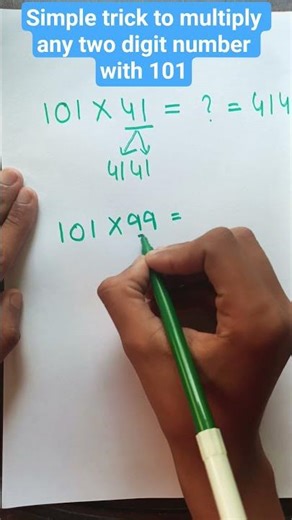 Simple trick to multiply
any two digit number
with 101
101 × 41 = ? = 414
4141
101 × 99 =